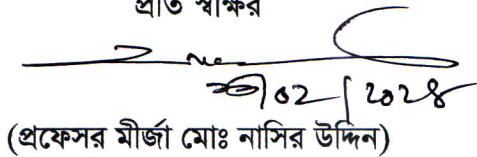 প্রতি স্বাক্ষর
০২/২০২৪
(প্রফেসর মীর্জা মোঃ নাসির উদ্দিন)